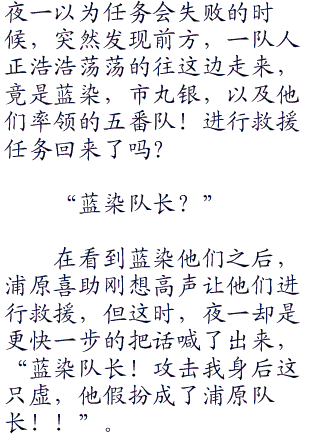 夜一以为任务会失败的时
候，突然发现前方，一队人
正浩浩荡荡的往这边走来，
竟是蓝染，市丸银，以及他
们率领的五番队！进行救援
任务回来了吗？
“蓝染队长？”
在看到蓝染他们之后，
浦原喜助刚想高声让他们进
行救援，但这时，夜一却是
更快一步的把话喊了出来，
“蓝染队长！攻击我身后这
只虚，他假扮成了浦原队
长！！”。